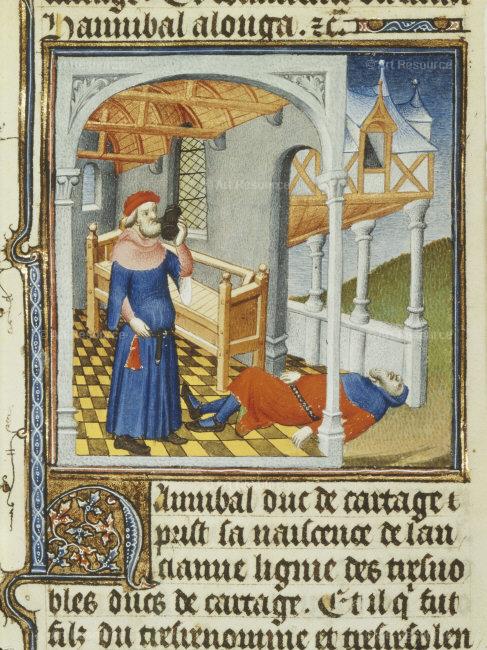 Hannibal alouga. zc̃.
© Art Resource
© Art Resource
Hannibal duc de cartage
prist sa naiscence de lan
cianne lignie des tresno
bles ducs de cartage. Et il q̃ fut
filz du tresrenomme et tresresplen